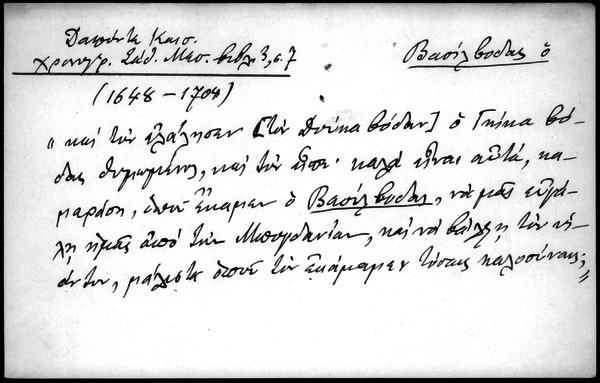 Δαπόντε Καισ.
χρονογρ. Σάθ. Μεσ. βιβλ. 3, σ. 7
Βασίλβοδας ὁ
(1648 – 1704)
"καὶ τὸν ἐλάλησεν [τὸν Δούκα βόδαν] ὁ Γκίκα βό-
δας θυμωμένος, καὶ τὸν εἶπε· καλὰ εἶναι αὐτά, κα-
μαράση, ὁποῦ ἔκαμεν ὁ Βασίλβοδας, νὰ μᾶς εὐγά-
λῃ ἡμᾶς ἀπὸ τὴν Μπογδανίαν, καὶ νὰ βάλῃ τὸν
μάλιστα ὁποῦ τὸν ἐκάμαμεν τόσαις καλοσύναις;"